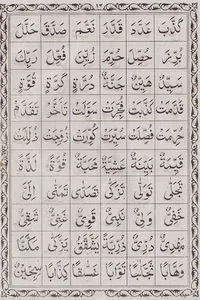 كَذَّبَ عَدَّدَ قَدَّرَ نَعَّمَ صَدَّقَ حَلَّلَ
بُرِّزَ حُصِّلَ حُرِّمَ زُيِّنَ فُعِّلَ رَبُّكَ
سَيِّدٌ هَيِّنٌ جَنَّةٌ دُرَّةٌ كَرَّةٌ قُوَّةٌ
قَدَّمَتْ كَذَّبَتْ فُجِّرَتْ سَوَّلَتْ تَأَخَّرَ تَقَدَّمَ
قُدِّمَتْ فُصِّلَتْ سُيِّرَتْ كُوِّرَتْ زُوِّجَتْ ذُلِّلَتْ
قَيِّمَةٌ بَيِّنَةٌ عَشِيَّةٌ لَذَّةٌ
تَوَلّٰى تَزَكّٰى تَصَدّٰى تَمَنّٰى إِلَىَّ
خَفِيٌّ وَلِيٌّ نَبِيٌّ قَوِيٌّ غَنِيٌّ شَقِيٌّ
دُرِّيٌّ ذُرِّيَّةٌ يَشَّقَّقُ يَزَّكّٰى مَكَّنَّا
وَهَّاجًا ثَجَّاجًا تَوَّابًا غَسَّاقًا كِذَّابًا سِجِّيْنٌ